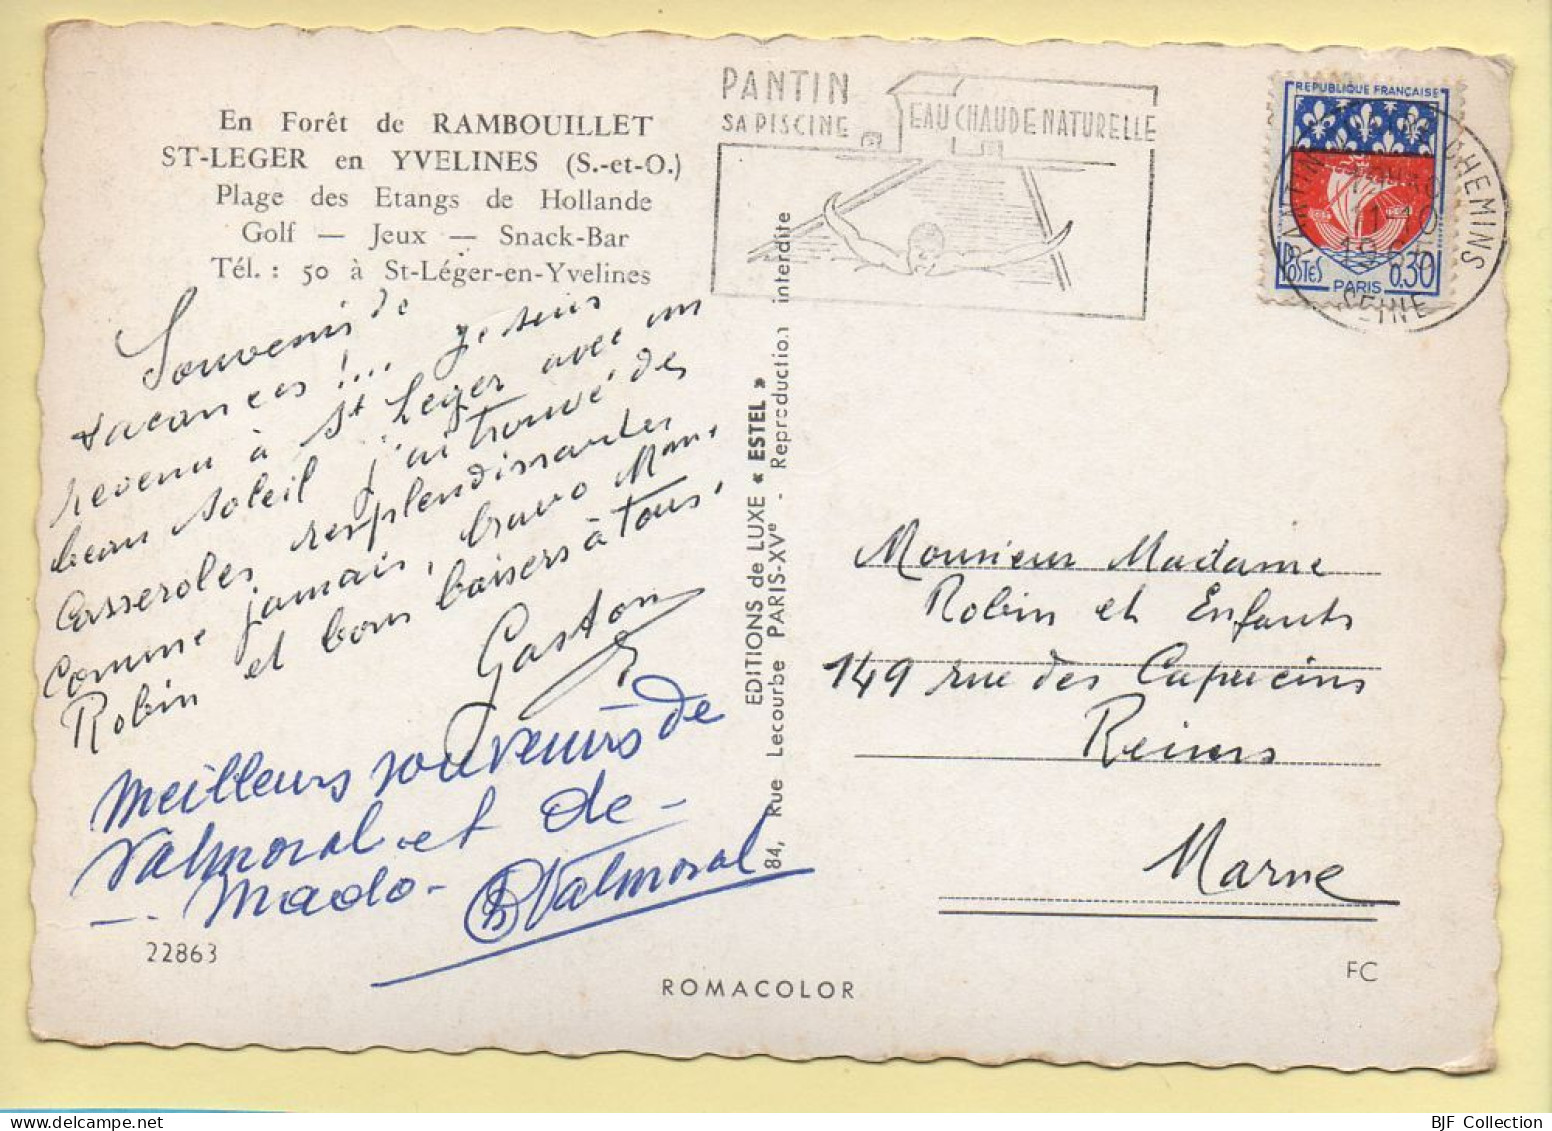 En Forêt de RAMBOUILLET
ST-LEGER en YVELINES (S.-et-O.)
Plage des Etangs de Hollande
Golf — Jeux — Snack-Bar
Tél. : 50 à St-Léger-en-Yvelines
Souvenir de
vacances !... je suis
revenu à St Leger avec un
beau soleil j'ai trouvé des
casseroles resplendissantes
comme jamais, bravo Mme
Robin et bons baisers à tous.
Gaston
Meilleurs souvenirs de
Valmoral et de
Mado -
Valmoral
22863
ROMACOLOR
EDITIONS de LUXE « ESTEL »
84, Rue Lecourbe PARIS-XVe - Reproduction interdite
PANTIN
SA PISCINE
EAU CHAUDE NATURELLE
REPUBLIQUE FRANÇAISE
POSTES
PARIS
0,30
PANTIN
CHEMINS
SEINE
Monsieur Madame
Robin et Enfants
149 rue des Capucins
Reims
Marne
FC
BJF Collection